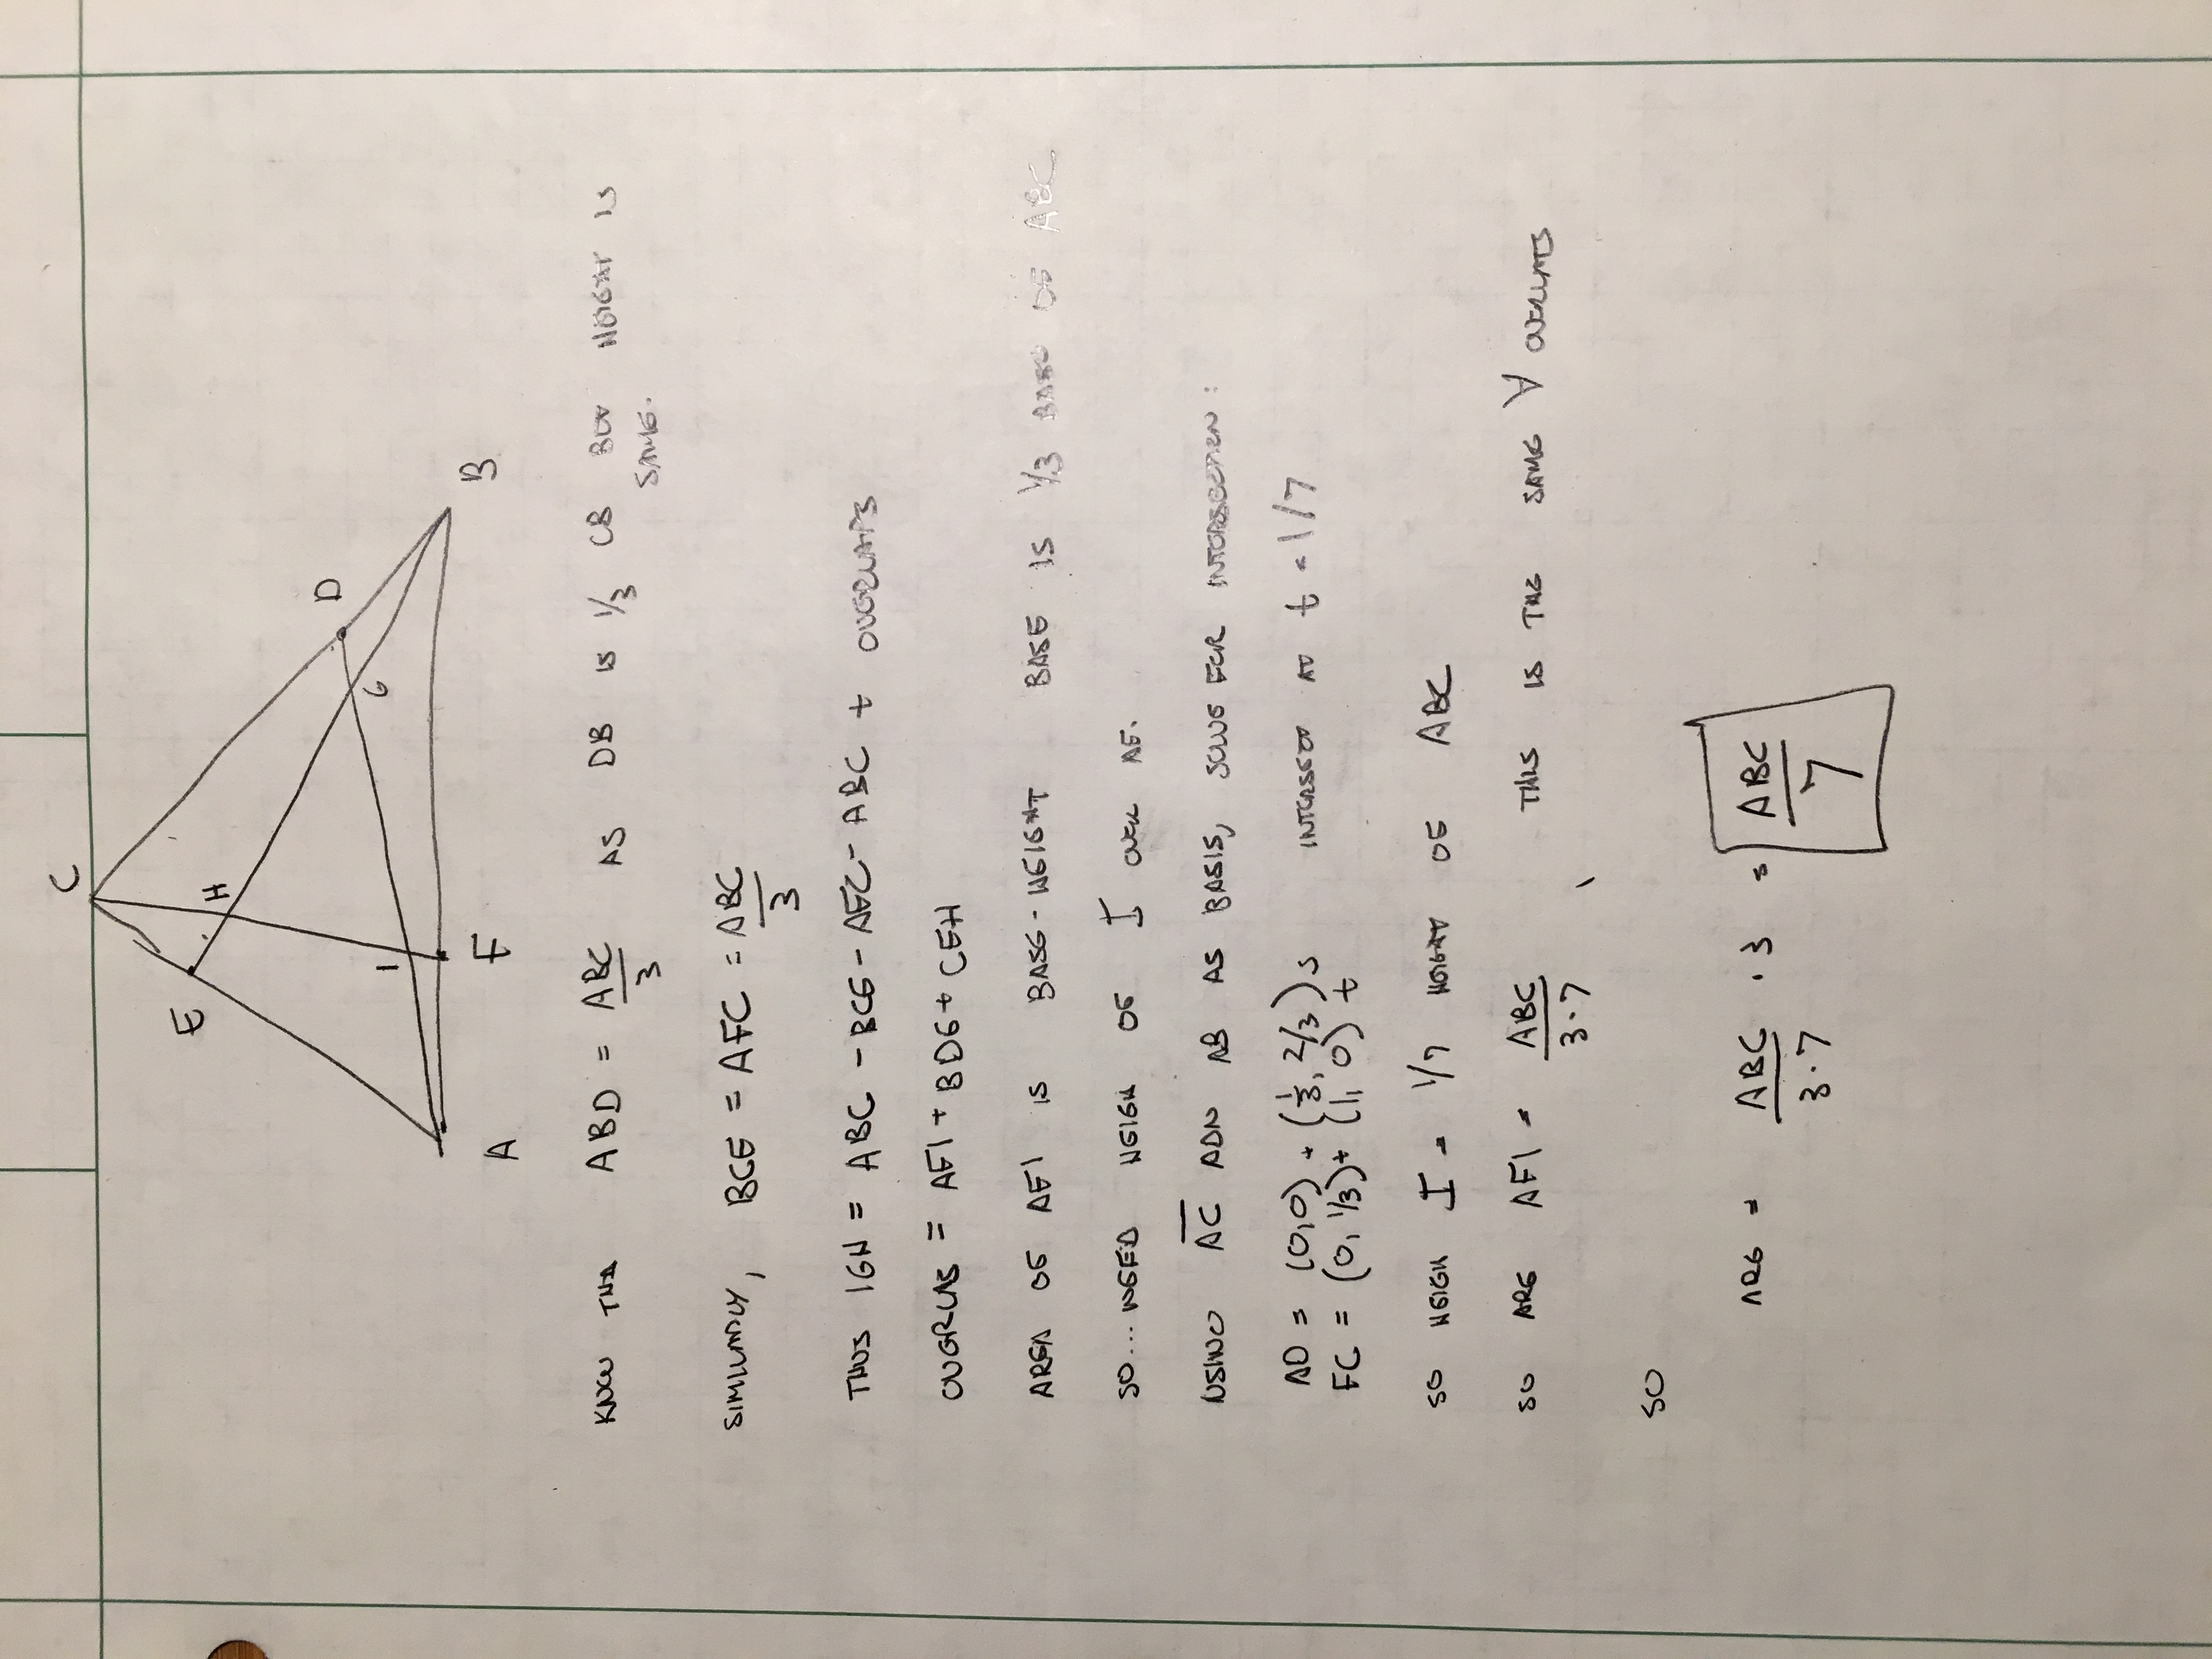 C
E
H
D
I
G
A
F
B
KNOW THA ABD = ABC/3 AS DB IS 1/3 CB BUT HEIGHT IS
SAME.
SIMILARLY, BCE = AFC = ABC/3
THUS IGH = ABC - BCE - AFC - ABC + OVERLAPS
OVERLAS = AFI + BDG + CEH
AREA OF AFI IS BASE·HEIGHT BASE IS 1/3 BASE OF ABC
SO... NEED HEIGH OF I OVER AF.
USING A̅C̅ ADN AB AS BASIS, SOLVE FOR INTERSECTION:
AD = (0,0) + (1/3, 2/3) s INTERSECT AT t = 1/7
FC = (0, 1/3) + (1, 0) t
SO HEIGH I = 1/7 HEIGHT OF ABC
SO ARE AFI = ABC/3·7, THIS IS THE SAME ∀ OVERLAPS
SO
ARE = ABC/3·7 · 3 = ABC/7